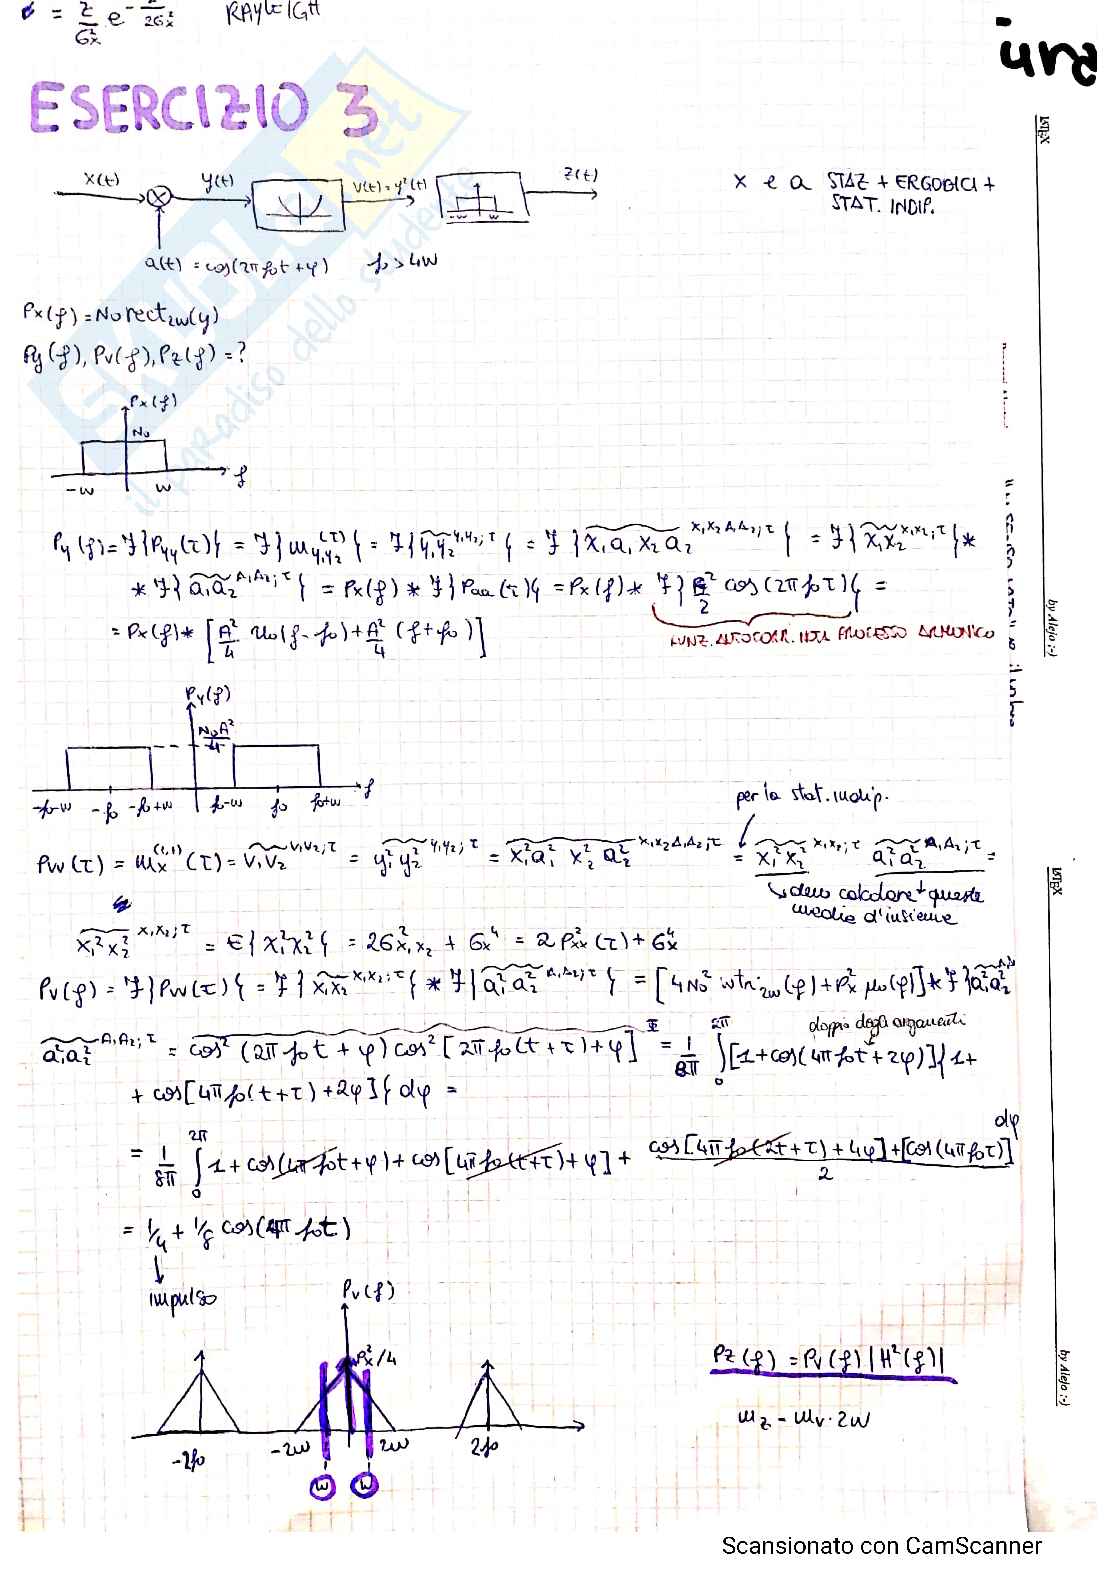 = z/σx² e^-z/2σx² RAYLEIGH
ESERCIZIO 3
x(t) y(t) v(t)=y²(t) z(t)
-w w
x e a STAZ + ERGODICI +
STAT. INDIP.
a(t) = cos(2π f₀t + φ) f₀ > 4W
Px(f) = N₀ rect2w(y)
Py(f), Pv(f), Pz(f) = ?
Px(f)
N₀
-w w f
Py(f) = F{Pyy(τ)} = F{m y₁y₂ (τ)} = F{y₁y₂ y₁,y₂;τ} = F{x₁a₁x₂a₂ x₁x₂A₁A₂;τ} = F{x₁x₂ x₁x₂;τ} *
* F{a₁a₂ A₁A₂;τ} = Px(f) * F{Paa(τ)} = Px(f) * F{A²/2 cos(2π f₀τ)} =
= Px(f) * [A²/4 u₀(f-f₀) + A²/4 (f+f₀)]
FUNZ. AUTOCORR. DEL PROCESSO ARMONICO
Py(f)
N₀A²/4
-f₀-w -f₀ -f₀+w f₀-w f₀ f₀+w f
per la stat. indip.
Pvv(τ) = mx(1,1)(τ) = v₁v₂ v₁,v₂;τ = y₁²y₂² y₁,y₂;τ = x₁²a₁² x₂²a₂² x₁x₂A₁A₂;τ = x₁²x₂² x₁x₂;τ a₁²a₂² A₁A₂;τ =
devo calcolare queste
medie d'insieme
x₁²x₂² x₁x₂;τ = E{x₁²x₂²} = 2σ²x₁x₂ + σx⁴ = 2P²xx(τ) + σx⁴
Pv(f) = F{Pvv(τ)} = F{x₁x₂ x₁x₂;τ} * F{a₁²a₂² A₁A₂;τ} = [4N₀² w tri2w(f) + Px² μ₀(f)] * F{a₁²a₂²
doppio degli argomenti
a₁²a₂² A₁A₂;τ = cos²(2π f₀t + φ) cos²[2π f₀(t+τ) + φ] = 1/8π ∫₀2π [1 + cos(4π f₀t + 2φ)]{1 +
+ cos[4π f₀(t+τ) + 2φ]} dφ =
= 1/8π ∫₀2π 1 + cos(4π f₀t + φ) + cos[4π f₀(t+τ) + φ] + cos[4π f₀(2t+τ) + 4φ] + [cos(4π f₀τ)]/2 dφ
= 1/4 + 1/8 cos(4π f₀t)
impulso
Pv(f)
Px²/4
-2f₀ -2w 2w 2f₀
w w
Pz(f) = Pv(f) |H²(f)|
mz = mv · 2w
SKUOLA.net
il paradiso dello studente
LATEX
by Alejo ;-)
LATEX
by Alejo ;-)
Scansionato con CamScanner